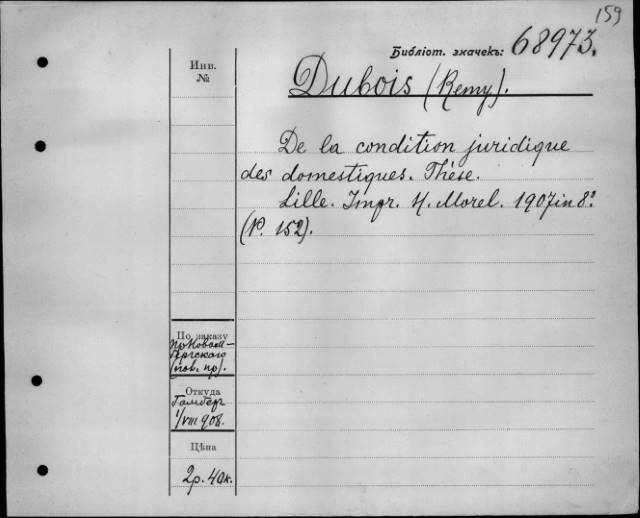 159
Библіот. значекъ: 68973.
Инв.
№
Dubois (Remy).
De la condition juridique
des domestiques. Thèse.
Lille. Impr. H. Morel. 1907 in 8º
(P. 152).
По заказу
Откуда
1/VIII 908.
Цѣна
2р. 40к.